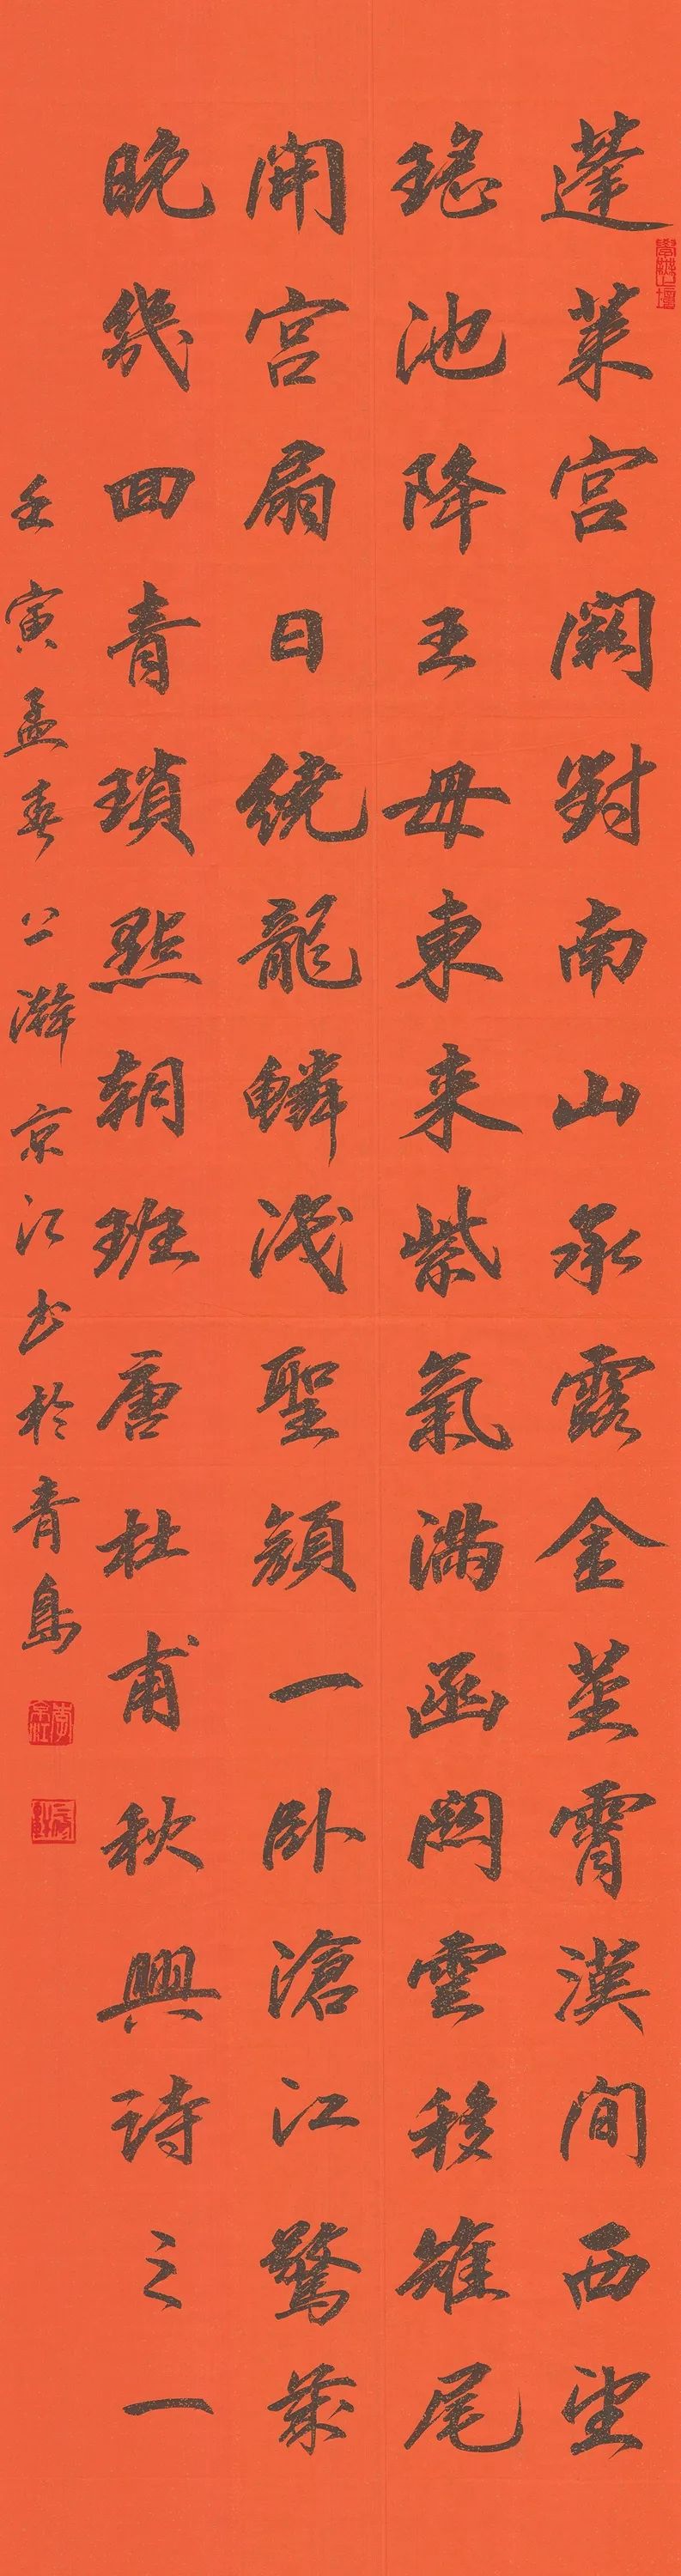 蓬萊宫闕對南山承露金莖霄漢間西望
瑶池降王母東来紫氣滿函關雲移雉尾
開宫扇日繞龍鱗識聖顔一卧滄江驚歲
晚幾回青瑣點朝班唐杜甫秋興詩之一
壬寅孟春上澣京江书於青島